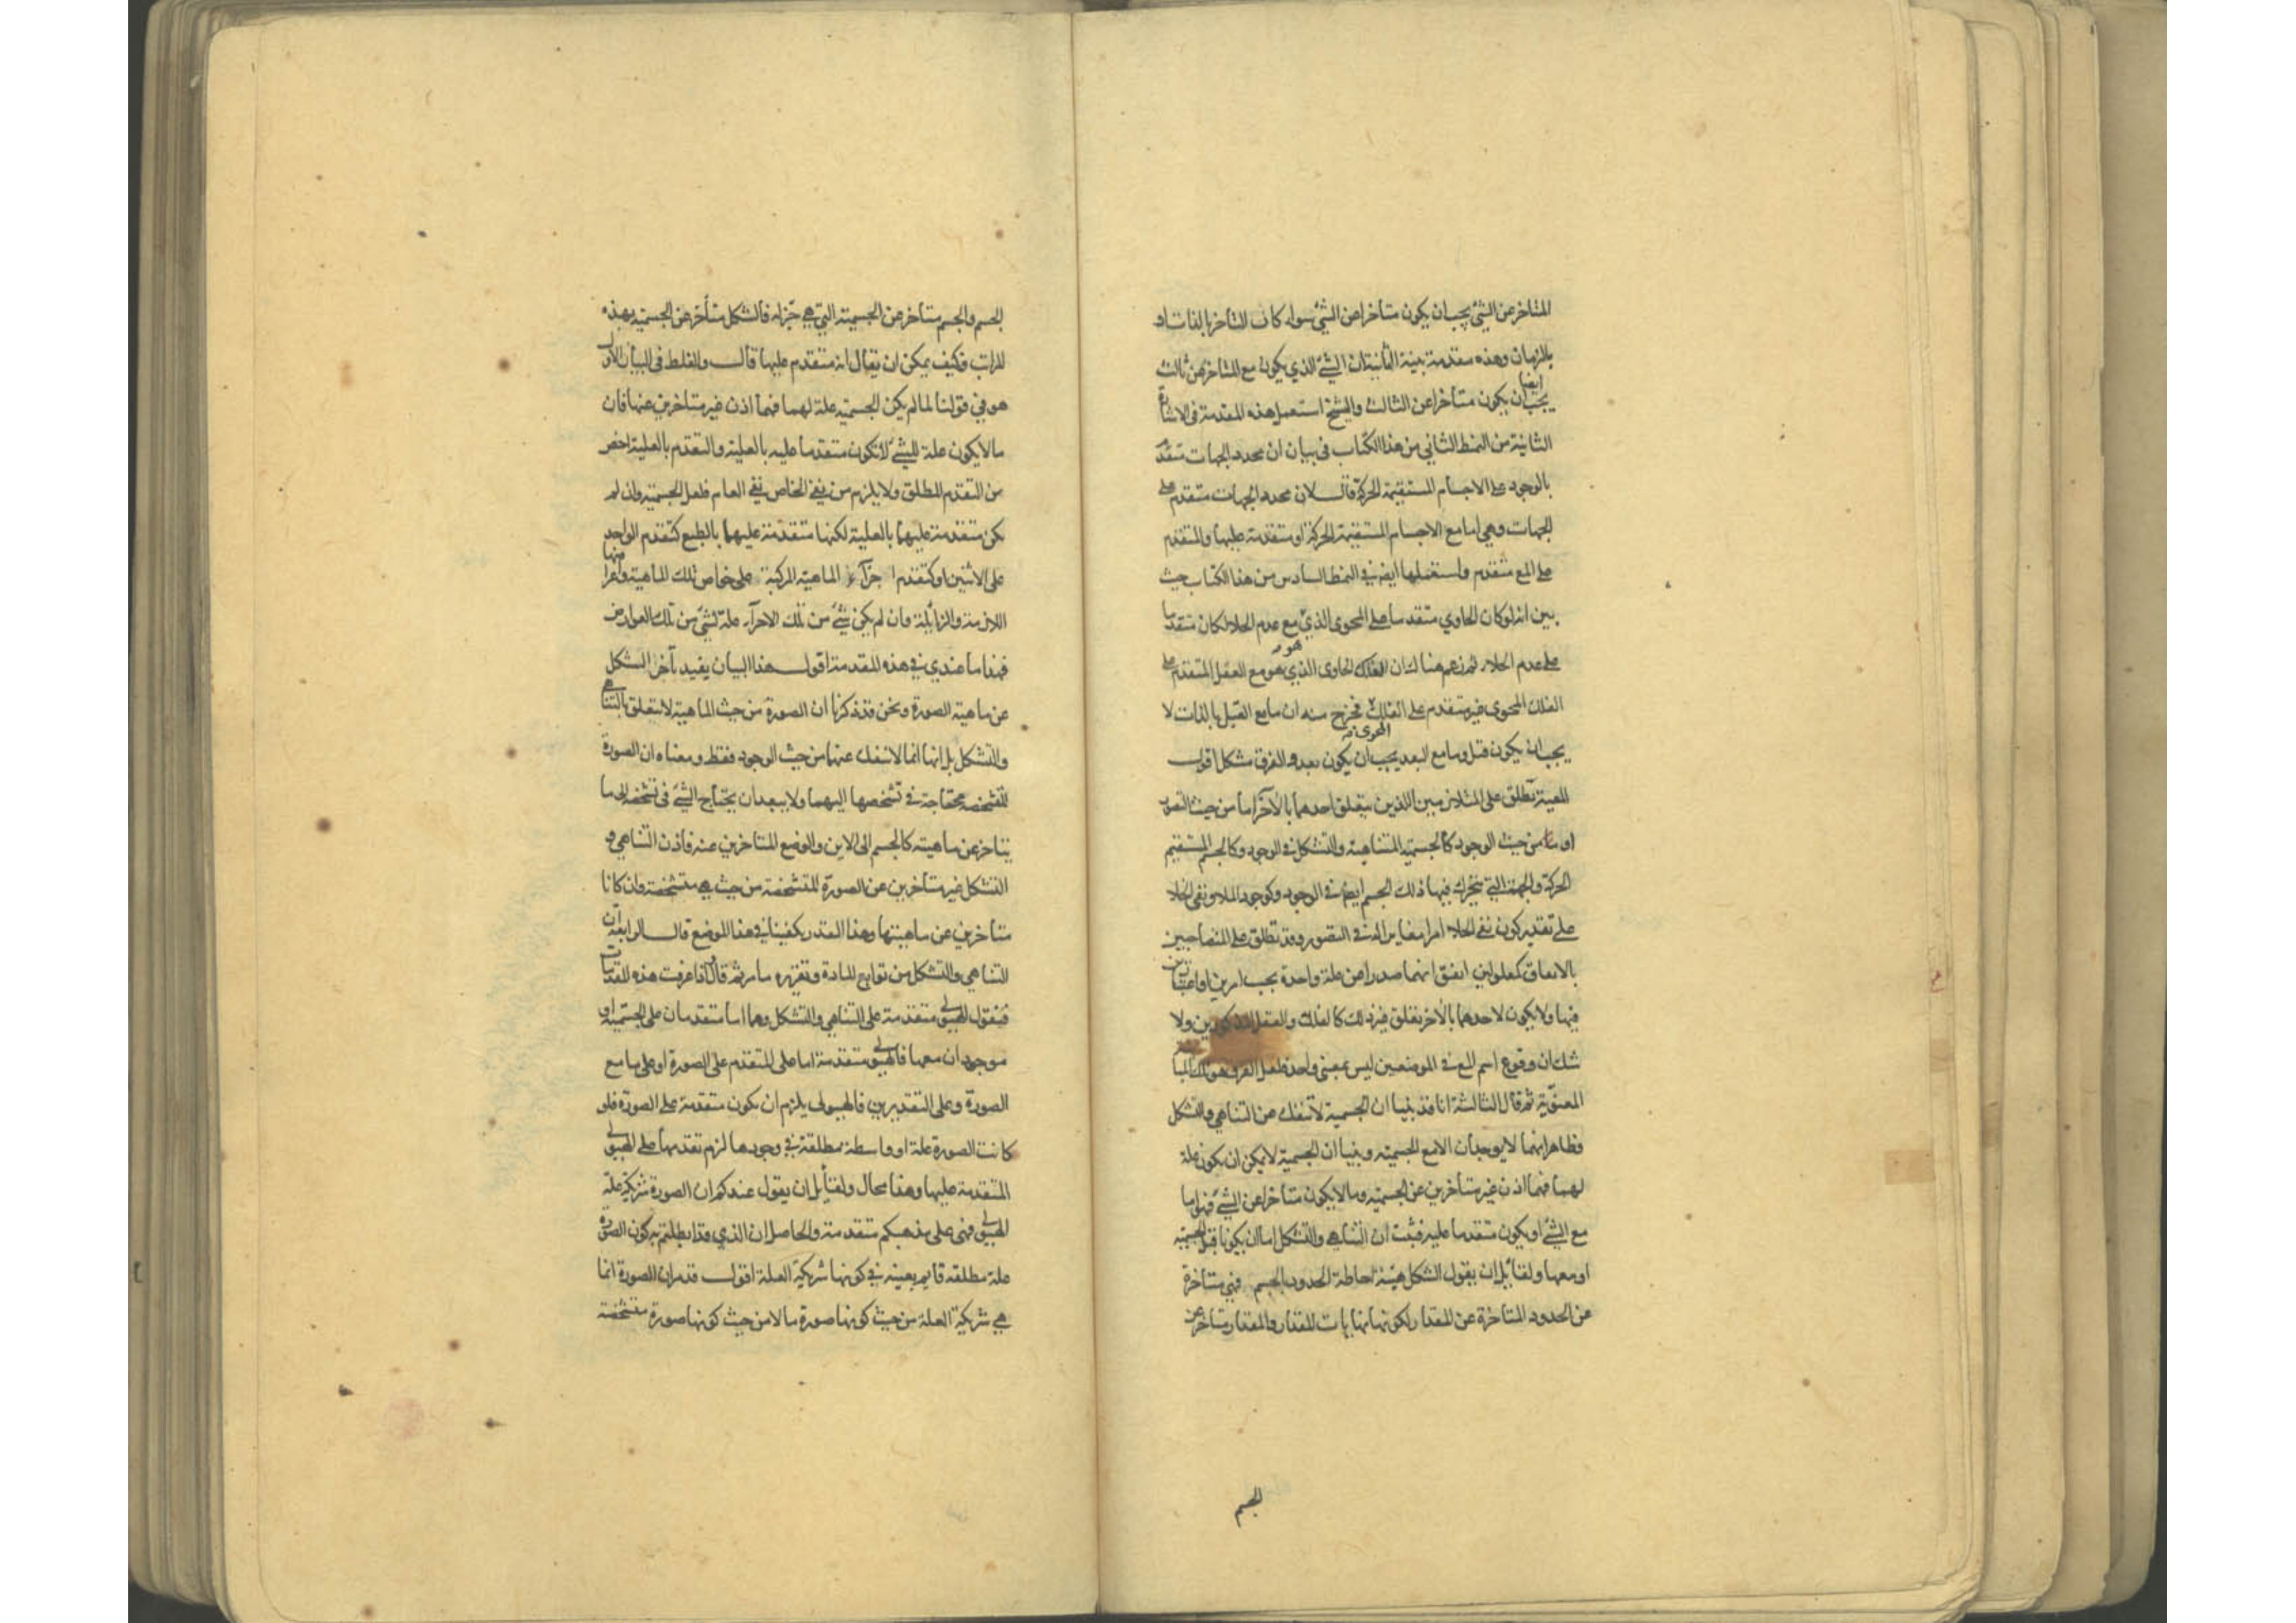 المتاخر عن الشئ يجب ان يكون متاخرا عن الشئ سواء كان التاخر بالذات او
بالزمان وهذه مقدمة بينة الثانية ان الشئ الذي يكون مع المتاخر عن ثالث
يجب ايضا ان يكون متأخرا عن الثالث والشيخ استعمل هذه المقدمة فى الاشارة
الثانية من النمط الثاني من هذا الكتاب فى بيان ان محدد الجهات متقدم
بالوجود على الاجسام المستقيمة الحركة قال لان محدد الجهات متقدم على
الجهات وهي اما مع الاجسام المستقيمة الحركة او متقدمة عليها والمتقدم
على المع متقدم واستعملها ايضا في النمط السادس من هذا الكتاب حيث
بين انه لو كان الحاوي متقدما على المحوى الذي مع عدم الخلاء لكان متقدما
على عدم الخلاء ثم زعم هناك ان الفلك الحاوى الذي هو مع العقل المتقدم على
الفلك المحوى غير متقدم على الفلك المحوى فخرج منه ان ما مع القبل بالذات لا
يجب ان يكون قبل وما مع البعد يجب ان يكون بعد والفرق مشكل اقول
المعية تطلق على المتلازمين اللذين يتعلق احدهما بالآخر اما من حيث التصور
او من حيث الوجود كالجسمية المتناهية والتشكل فى الوجود وكالجسم المستقيم
الحركة والجهة التي يتحرك فيها ذلك الجسم ايضا فى الوجود وكوجود الملاء ونفى الخلاء
على تقدير كون نفى الخلاء امرا مغايرا له فى التصور وقد تطلق على المتصاحبين
بالاتفاق كمعلولين اتفق انهما صدرا عن علة واحدة بحسب امرين او اعتبارين
فيها ولا يكون لاحدهما بالآخر تعلق غير ذلك كالفلك والعقل المذكورين ولا
شك ان وقوع اسم المع فى الموضعين ليس بمعنى واحد فلعل الفرق هو المباينة
المعنوية ثم قال الثالثة انا قد بينا ان الجسمية لا تنفك عن التناهي والتشكل
وظاهر انهما لا يوجدان الا مع الجسمية وبينا ان الجسمية لا يمكن ان يكون علة
لهما فهما اذن غير متأخرين عن الجسمية وما لا يكون متأخرا عن الشئ فهو اما
مع الشئ او يكون متقدما عليه فثبت ان التناهى والتشكل اما ان يكونا قبل الجسمية
او معها ولقائل ان يقول الشكل هيئة احاطة الحدود بالجسم فهي متاخرة
عن الحدود المتاخرة عن المقدار لكونها نهايات للمقدار والمقدار متاخر عن
الجسم
الجسم والجسم متاخر عن الجسمية التي هي جزءه فالشكل متأخر عن الجسمية بهذه
المراتب فكيف يمكن ان يقال انه متقدم عليها قال والغلط فى البيان الاول
هو في قولنا لما لم يكن الجسمية علة لهما فهما اذن غير متاخرين عنها فان
ما لا يكون علة للشئ لا يكون متقدما عليه بالعلية والتقدم بالعلية اخص
من التقدم المطلق ولا يلزم من نفى الخاص نفى العام فلعل الجسمية وان لم
يكن متقدمة عليهما بالعلية لكنها متقدمة عليهما بالطبع كتقدم الواحد
على الاثنين او كتقدم اجزاء الماهية المركبة على خواص تلك الماهية واعراضها
اللازمة والزائلة وان لم يكن شئ من تلك الاجزاء علة لشئ من تلك العوارض
فهذا ما عندي في هذه المقدمة اقول هذا البيان يفيد تأخر الشكل
عن ماهية الصورة ونحن قد ذكرنا ان الصورة من حيث الماهية لا تتعلق بالتناهي
والتشكل بل انها انما لا تنفك عنهما من حيث الوجود فقط ومعناه ان الصورة
المتشخصة محتاجة في تشخصها اليهما ولا يبعد ان يحتاج الشئ فى تشخصه الى ما
يتاخر عن ماهيته كالجسم الى الاين والوضع المتاخرين عنه فاذن التناهي و
التشكل غير متأخرين عن الصورة المتشخصة من حيث هي متشخصة وان كانا
متأخرين عن ماهيتها وهذا القدر يكفينا في هذا الموضع قال الرابعة ان
التناهي والتشكل من توابع المادة وتقريره ما مر ثم قال واذا عرفت هذه المقدمات
فنقول الهيولى متقدمة على التناهي والتشكل وهما اما متقدمان على الجسمية او
موجودان معها فالهيولى متقدمة اما على المتقدم على الصورة او على ما مع
الصورة وعلى التقديرين فالهيولى يلزم ان يكون متقدمة على الصورة فلو
كانت الصورة علة او واسطة مطلقة في وجودها لزم تقدمها على الهيولى
المتقدمة عليها وهذا محال ولقائل ان يقول عندكم ان الصورة شريكة علة
الهيولى فهى على مذهبكم متقدمة والحاصل ان الذي قد ابطلتم به كون الصورة
علة مطلقة قايم بعينه في كونها شريكة العلة اقول قد مر ان الصورة انما
هي شريكة العلة من حيث كونها صورة ما لا من حيث كونها صورة متشخصة